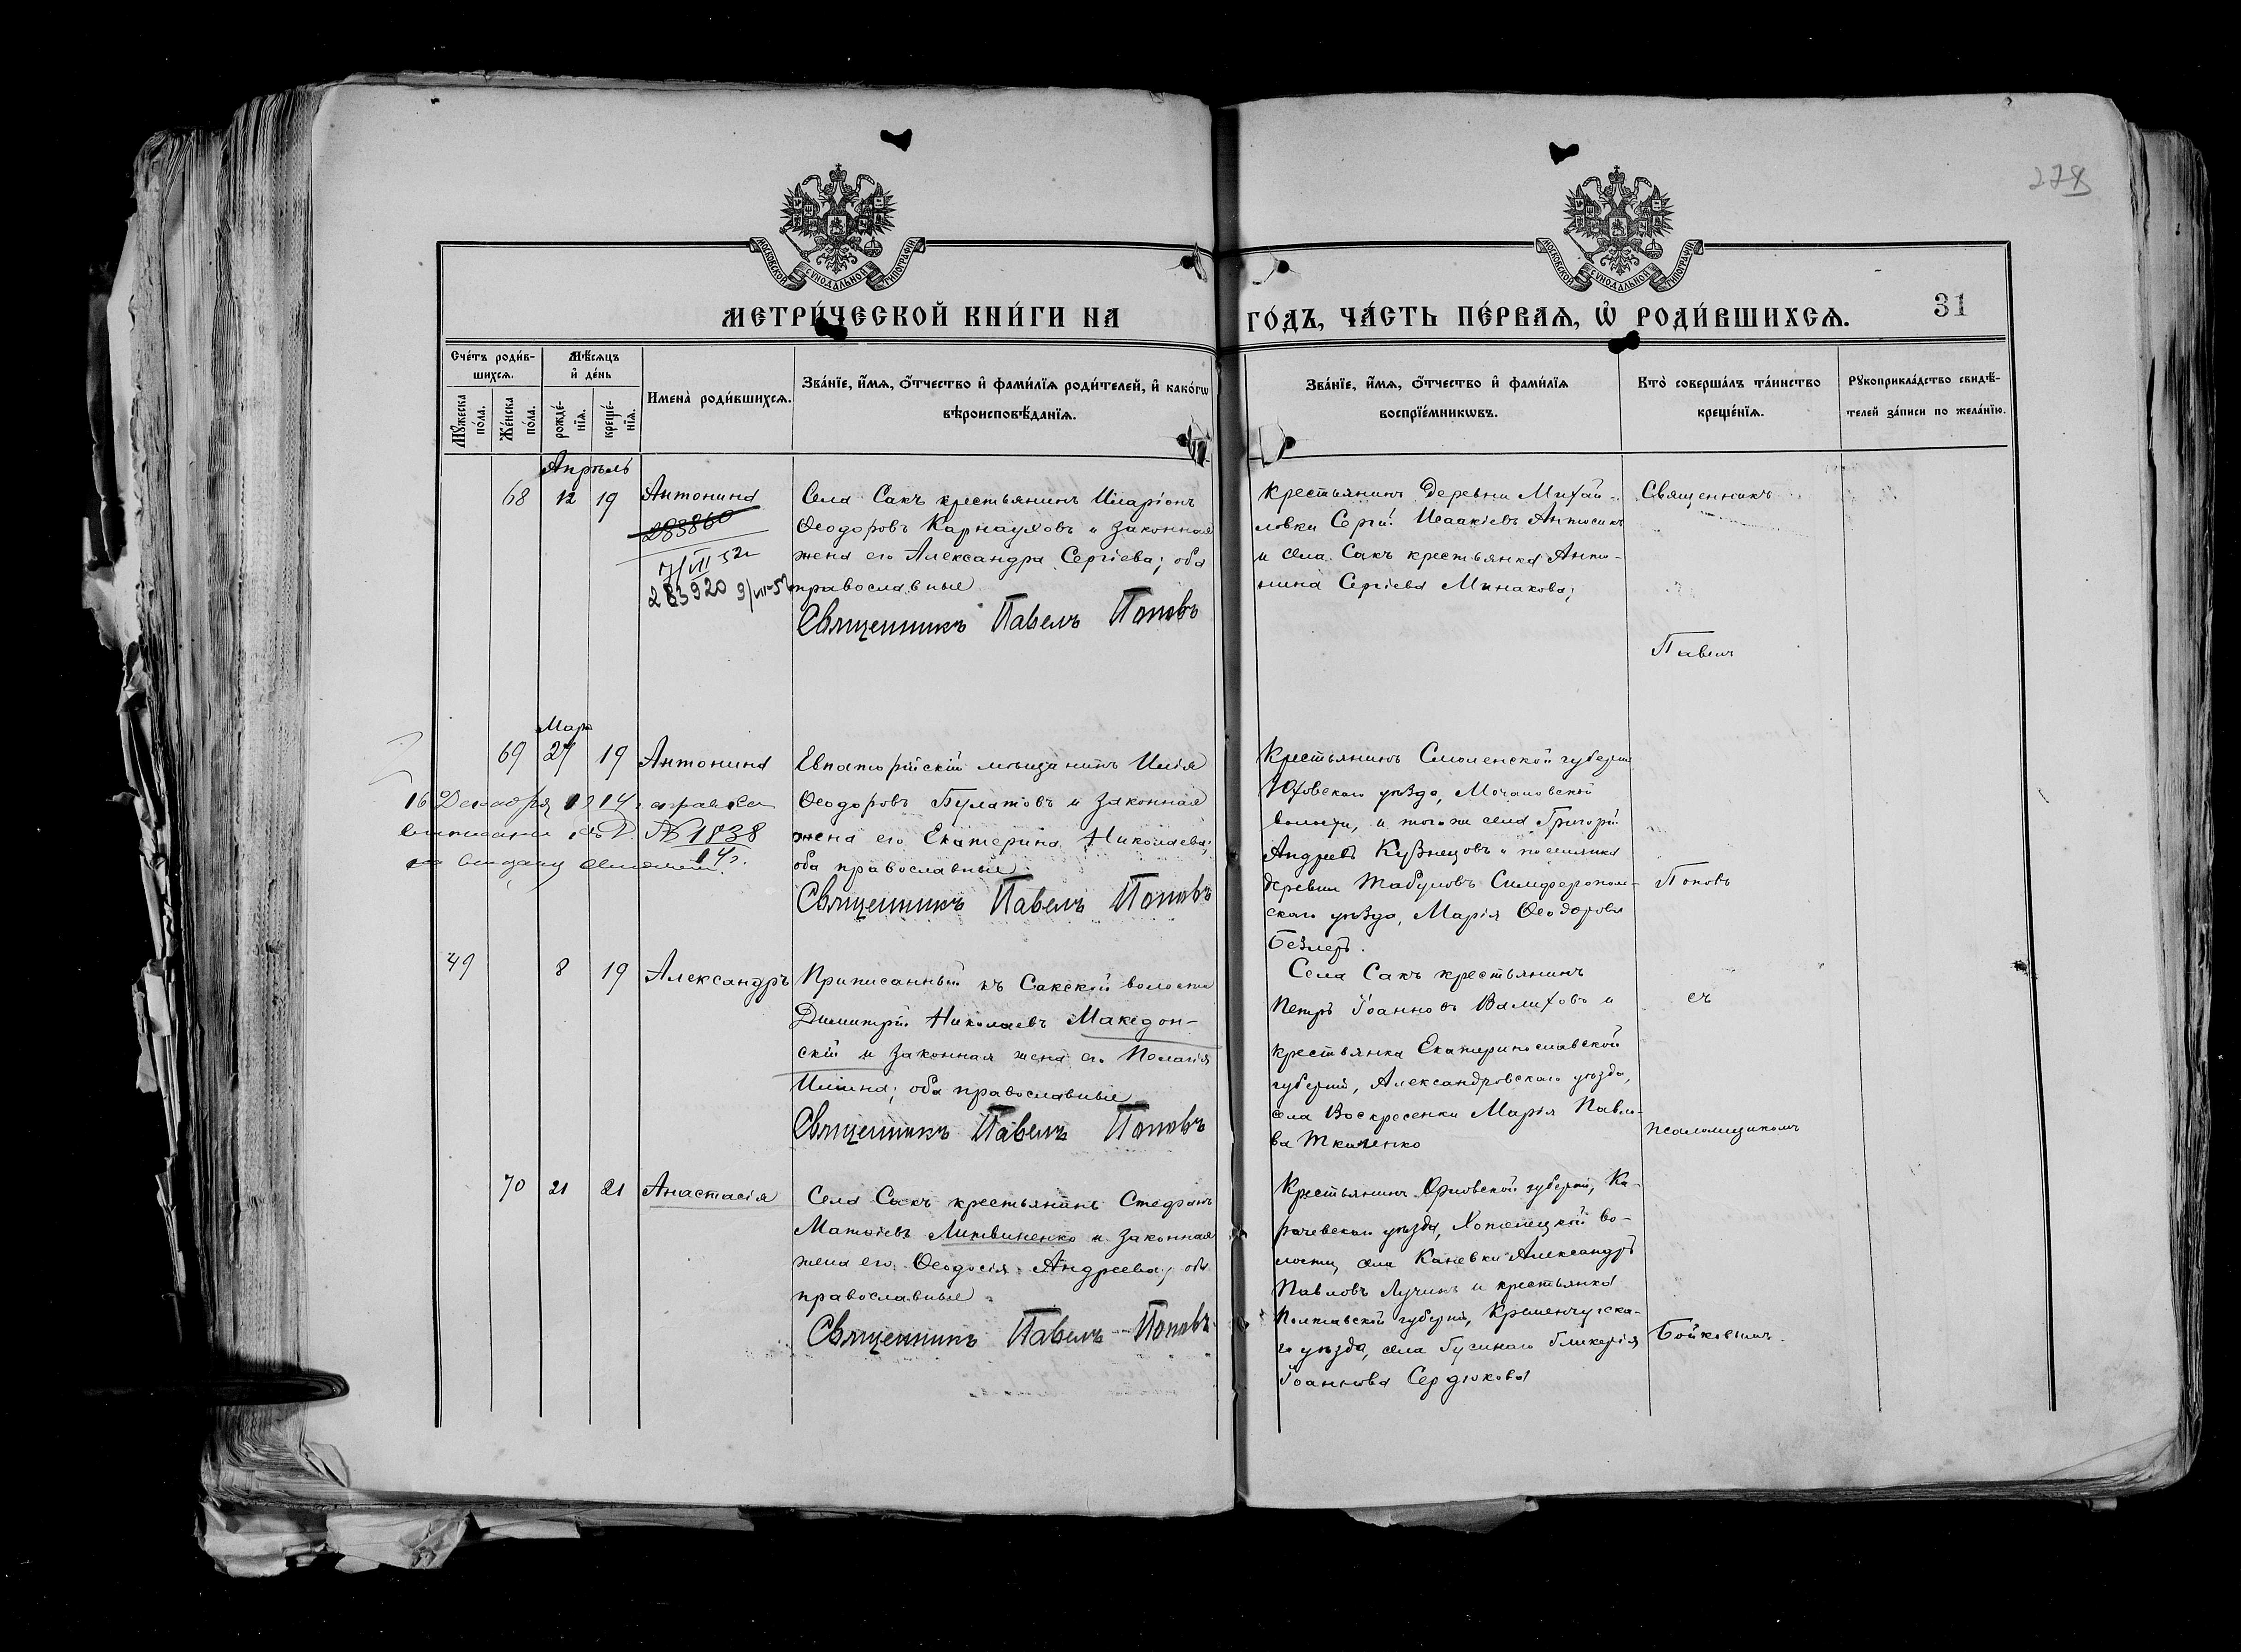 278
МОСКОВСКОЙ СѴНОДАЛЬНОЙ ТИПОГРАФІИ
МОСКОВСКОЙ СѴНОДАЛЬНОЙ ТИПОГРАФІИ
МЕТРИ́ЧЕСКОЙ КНИ́ГИ НА
ГО́ДЪ, ЧА́СТЬ ПЕ́РВАЯ, Ѡ҆ РОДИ́ВШИХСЯ.
31
Сче́тъ роди́в-
шихся.
Мѣ́сяцъ
и҆ де́нь
Мꙋ́жеска
по́ла.
Же́нска
по́ла.
рожде́-
нїя.
креще́-
нїя.
Имена̀ роди́вшихся.
Зва́нїе, и҆́мя, ѻ҆́тчество и҆ фами́лїя роди́телей, и҆ како́гѡ
вѣроисповѣ́данїя.
Зва́нїе, и҆́мя, ѻ҆́тчество и҆ фами́лїя
воспрїе́мникѡвъ.
Кто̀ соверша́лъ та́инство
креще́нїя.
Рꙋкоприкла́дство свидѣ́-
телей за́писи по жела́нїю.
Апрѣль
68 12 19 Антонина
283860
7/VII 52г
283920 9/VII-52
Села Сакъ крестьянинъ Иларіонъ
Ѳеодоровъ Карнауховъ и законная
жена его Александра Сергіева; оба
православные
Священникъ Павелъ Поповъ
Крестьянинъ деревни Михай-
ловки Сергій Исаакіевъ
и села Сакъ крестьянка Анто-
нина Сергіева Минакова;
Священникъ
Павелъ
Март
69 27 19 Антонина
16 Декабря 1914 г.
№ 1838
14г.
Евпаторійскій мѣщанинъ Илія
Ѳеодоровъ Булатовъ и законная
жена его Екатерина Николаева;
оба православные
Священникъ Павелъ Поповъ
Крестьянинъ Смоленской губерніи
Юховскаго уѣзда,
волости, и того же села Григорій
Андреевъ Кузнецовъ и поселянка
деревни Табуловъ Симферополь-
скаго уѣзда, Марія Ѳеодорова
Безлеръ.
Поповъ
49 8 19 Александръ
Приписанный къ Сакской волости
Димитрій Николаевъ Македон-
скій и законная жена его Пелагія
Ильина; оба православные
Священникъ Павелъ Поповъ
Села Сакъ крестьянинъ
Петръ Іоанновъ Валиховъ и
крестьянка Екатеринославской
губерніи, Александровскаго уѣзда,
села Воскресенки Марія Павло-
ва Ткаченко
съ
псаломщикомъ
70 21 21 Анастасія
Села Сакъ крестьянинъ Стефанъ
Матѳіевъ Литвиненко и законная
жена его Ѳеодосія Андреева; оба
православные
Священникъ Павелъ Поповъ
Крестьянинъ Орловской губерніи, Ка-
рачевскаго уѣзда, Хотенецкой во-
лости, села Каневки Александръ
Павловъ Лучинъ и крестьянка
Полтавской губерніи, Кременчугска-
го уѣзда, села Гусинаго Гликерія
Іоаннова Сердюкова
Бойковымъ.